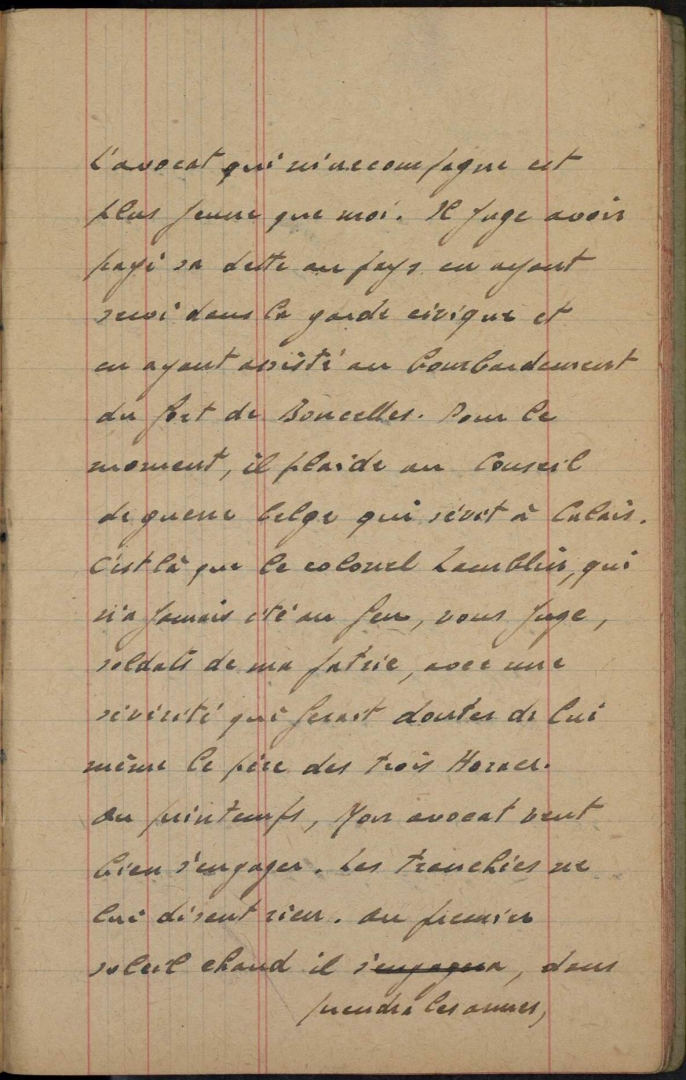 L'avocat qui m'accompagne est
plus jeune que moi. Il juge avoir
payé sa dette au pays en ayant
servi dans la garde civique et
en ayant assisté au bombardement
du fort de Boncelles. Pour le
moment, il plaide au Conseil
de guerre belge qui sévit à Calais.
C'est là que le colonel Lamblin, qui
n'a jamais été au feu, vous juge,
soldats de ma patrie, avec une
sévérité qui ferait douter de lui
même le père des trois Horace.
Au printemps, mon avocat veut
bien s'engager. Les tranchées ne
lui disent rien. Au premier
soleil chaud il s'engagera, dans
prendra les armes,